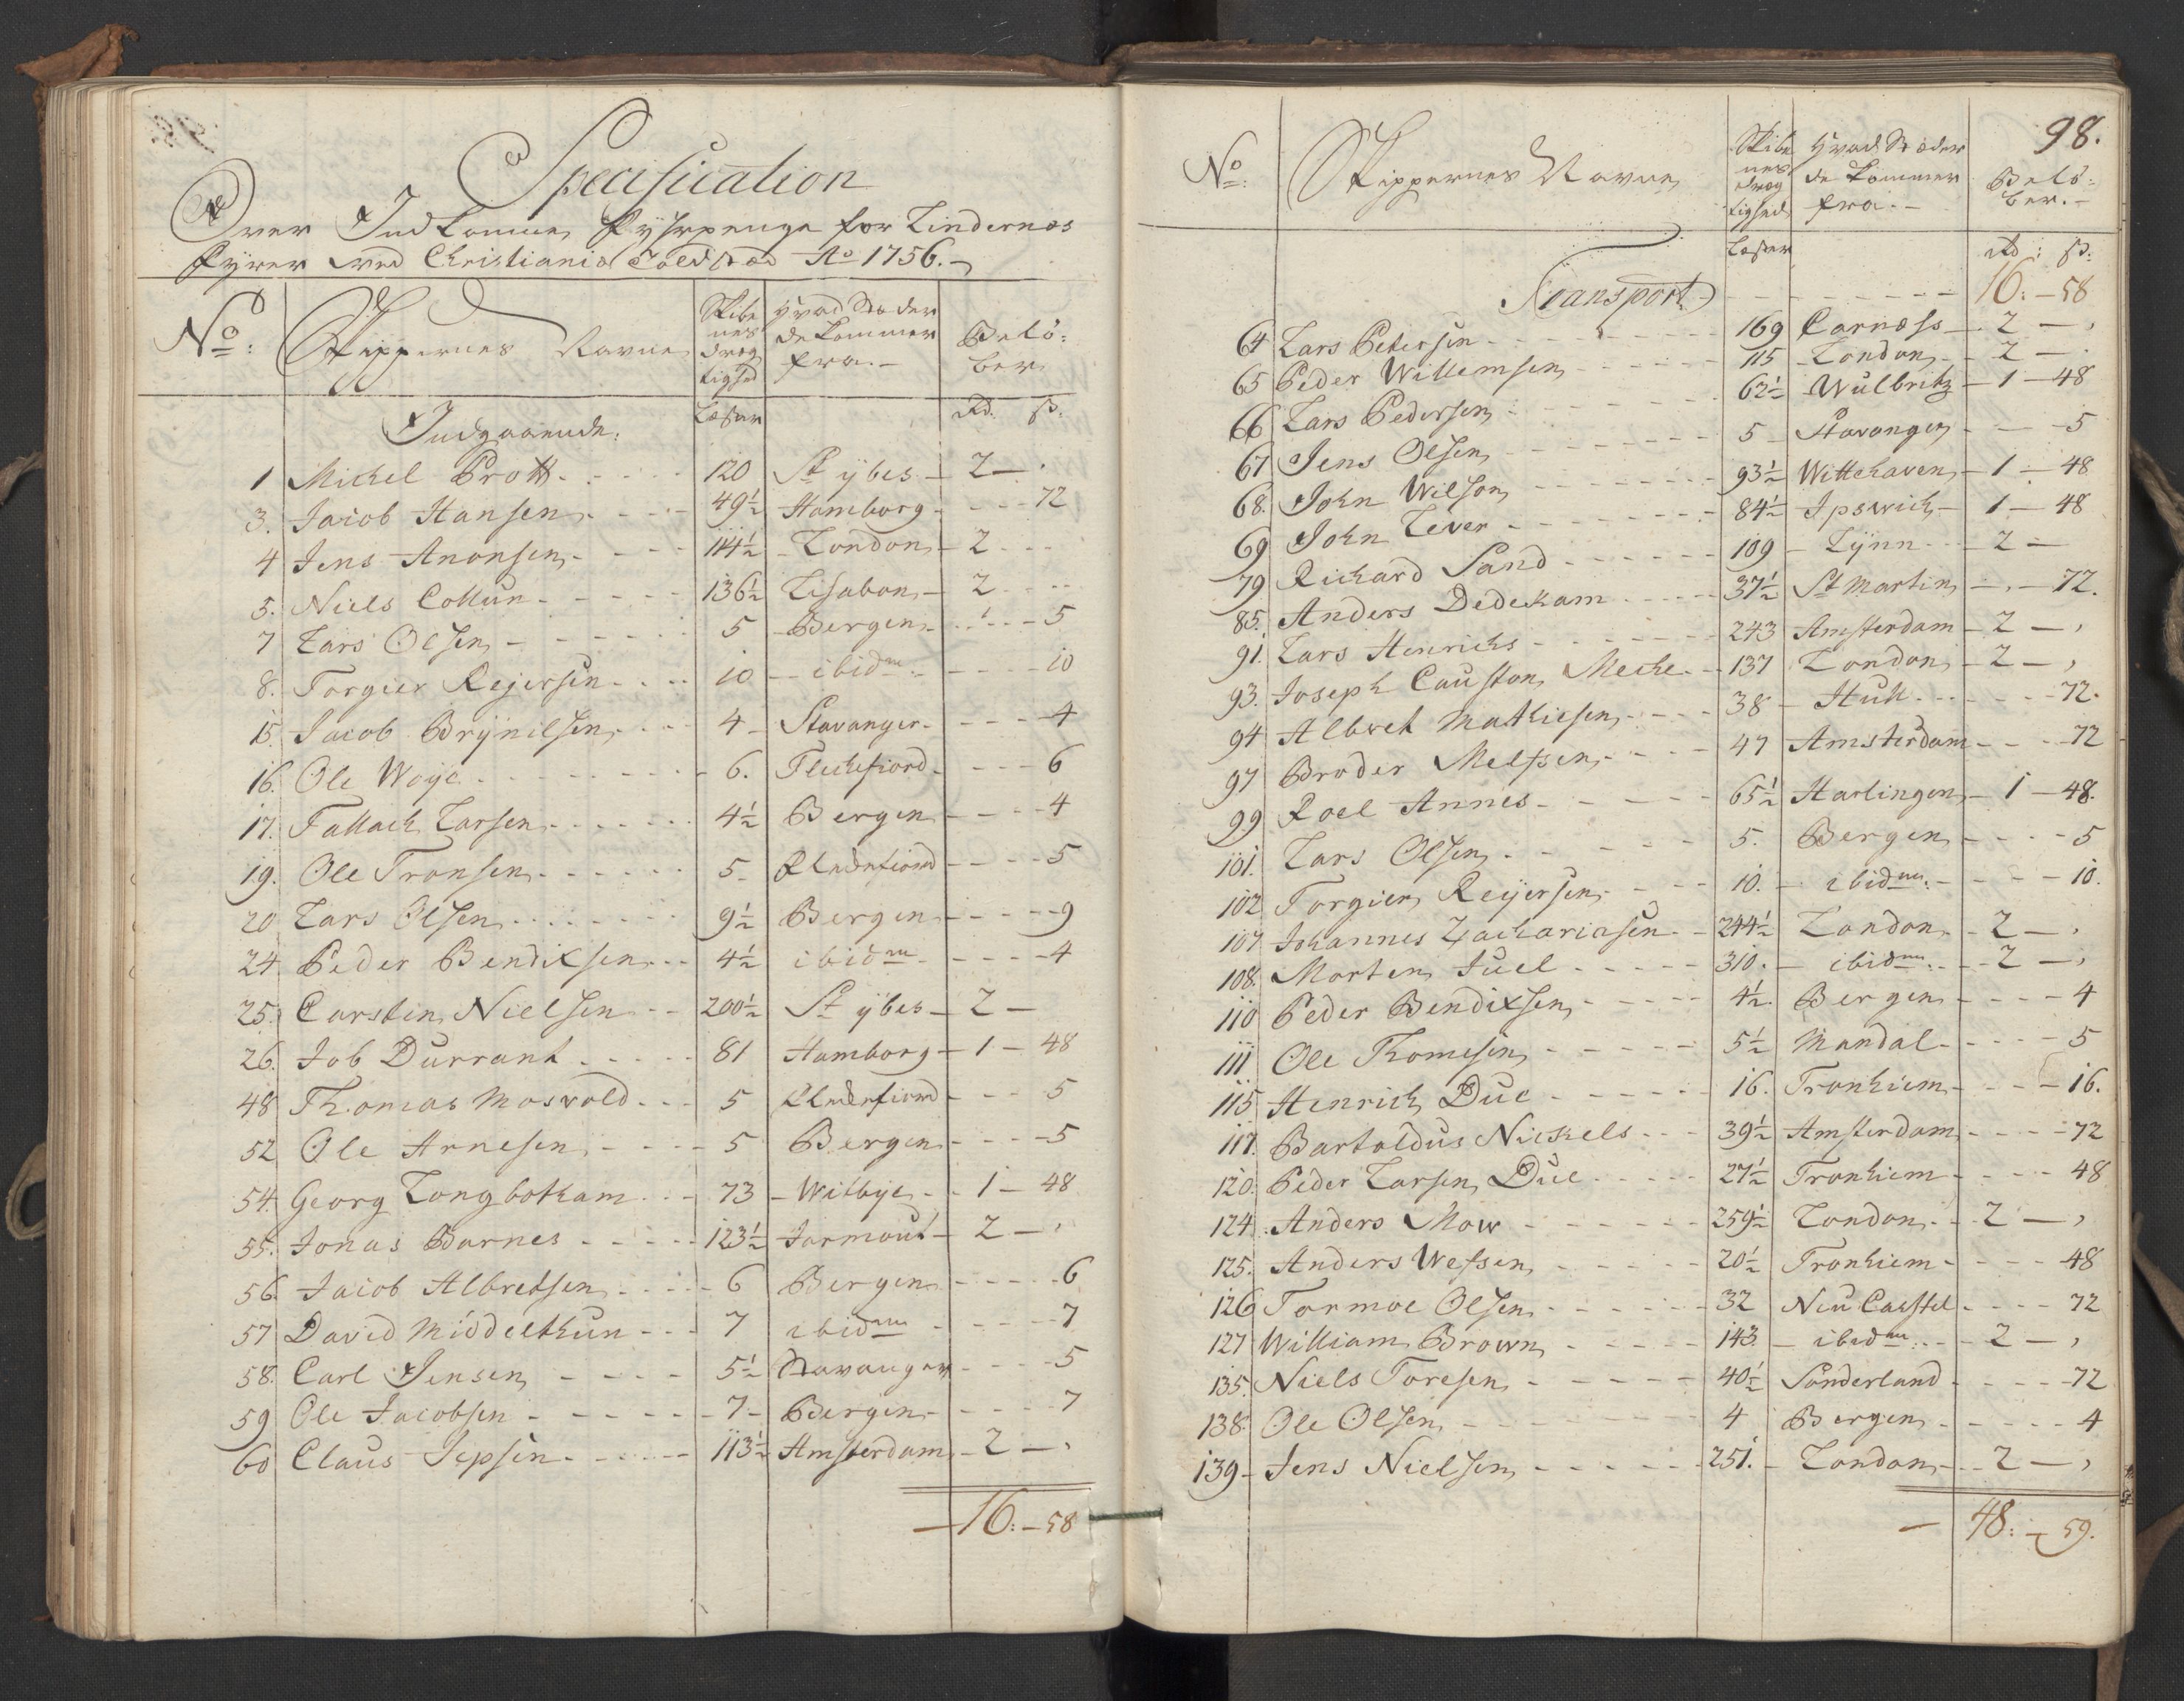 Specification
Over Indkomne Fyhrpenge for Lindernæs
Fyrer ved Christiania Toldsted Ao 1756.
No: Skippernes Navne Skibenes Drægtighed Hvad Stæder de kommer fra. Beløber
Indgaaende. Læster Rd. ß.
1 Michel Prott 120 St ybes 2 —
3. Jacob Hansen 49½ Hamborg 72
4 Jens Anonsen 114½ London 2
5. Niels Collun 136½ Lisabon 2
7 Lars Olsen 5 Bergen 5
8. Torgier Rejersen 10 ibidm 10
15. Jacob Brÿnilsen 4 Stavanger 4
16. Ole Woye 6. Fleckefiord 6
17. Tallach Larsen 4½ Bergen 4
19. Ole Tronsen 5 5
20 Lars Olsen 9½ Bergen 9
24 Peder Bendixsen 4½ ibidm 4
25. Carsten Nielsen 200½ St ÿbes 2 —
26. Job Durrant 81 Hamborg 1 — 48
48 Thomas Mosvold 5 5
52 Ole Arnesen 5 Bergen 5
54. Georg Longbotham 73 Witbye 1 — 48
55. Jonas Barnes 123½ Jarmout 2 —
56. Jacob Albretsen 6 Bergen 6
57 David Middelthun 7 ibidm 7
58. Carl Jensen 5½ Stavanger 5
59 Ole Jacobsen 7 Bergen 7
60 Claus Jepsen 113½ Amsterdam 2 —
16: — 58
98.
No: Skippernes Navne Skibenes Drægtighed Hvad Stæder de kommer fra. Beløber.
Læster Rd: ß:
Transport 16: — 58
64 Lars Petersen 169 Carnæss 2 —
65 Peder Willemsen 115 London 2 —
66 Lars Pedersen 62½ Wulbritz 1 — 48
67 Jens Olsen 5 Stavanger 5
68. John Wilson 93½ Wittehaven 1 — 48
69 John Lever 84½ Ipswich 1 — 48
79 Richard Sand 109 Lÿnn 2 —
85. Anders Dedekam 37½ St Martin 72.
91. Lars Henrichs 243 Amsterdam 2 —
93. Joseph Causton Meche 137 London 2 —
94 Albret Mathiesen 38 Hull 72.
97 Broder Melfsen 47 Amsterdam 72
99 Roel Annes 65½ Harlingen 1 — 48.
101. Lars Olsen 5. Bergen 5
102 Torgier Reÿersen 10. ibidm 10.
107 Johannes Zachariasen 244½ London 2 —
108. Morten Juel 310. ibidm 2 —
110 Peder Bendixsen 4½ Bergen 4
111 Ole Thomesen 5½ Mandal 5
115 Henrich Due 16. Tronhiem 16.
117. Bartoldus Nickels 39½ Amsterdam 72
120. Peder Larsen Due 27½ Tronhiem 48
124. Anders Mow 259½ London 2 —
125. Anders Wessen 20½ Tronhiem 48
126 Tormoe Olsen 32 Neu Casstel 72
127 William Brown 143. ibidm 2 —
135. Niels Toresen 40½ Sunderland 72
138. Ole Olsen 4 Bergen 4
139 Jens Nielsen 251. London 2 —
48: — 59.